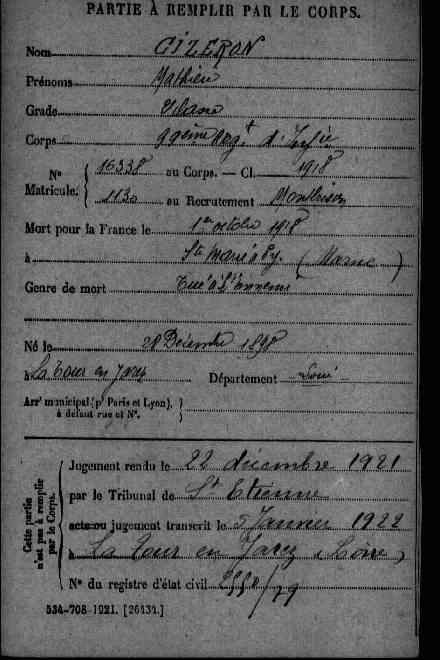 PARTIE À REMPLIR PAR LE CORPS.
Nom CIZERON
Prénoms Mathieu
Grade 2e classe
Corps 99ème Régt d'Infie
N° Matricule. 16338 au Corps. — Cl. 1918
1130 au Recrutement Montbrison
Mort pour la France le 1er octobre 1918
à Ste Marie à Py. (Marne)
Genre de mort Tué à l'Ennemi
Né le 28 Décembre 1898
à La Tour en Jarez Département Loire
Arrt municipal (pr Paris et Lyon),
à défaut rue et N°.
Cette partie n'est pas à remplir par le Corps.
Jugement rendu le 22 décembre 1921
par le Tribunal de St Etienne
acte ou jugement transcrit le 5 Janvier 1922
à La Tour en Jarez (Loire)
N° du registre d'état civil
534-708-1921. [26434.]